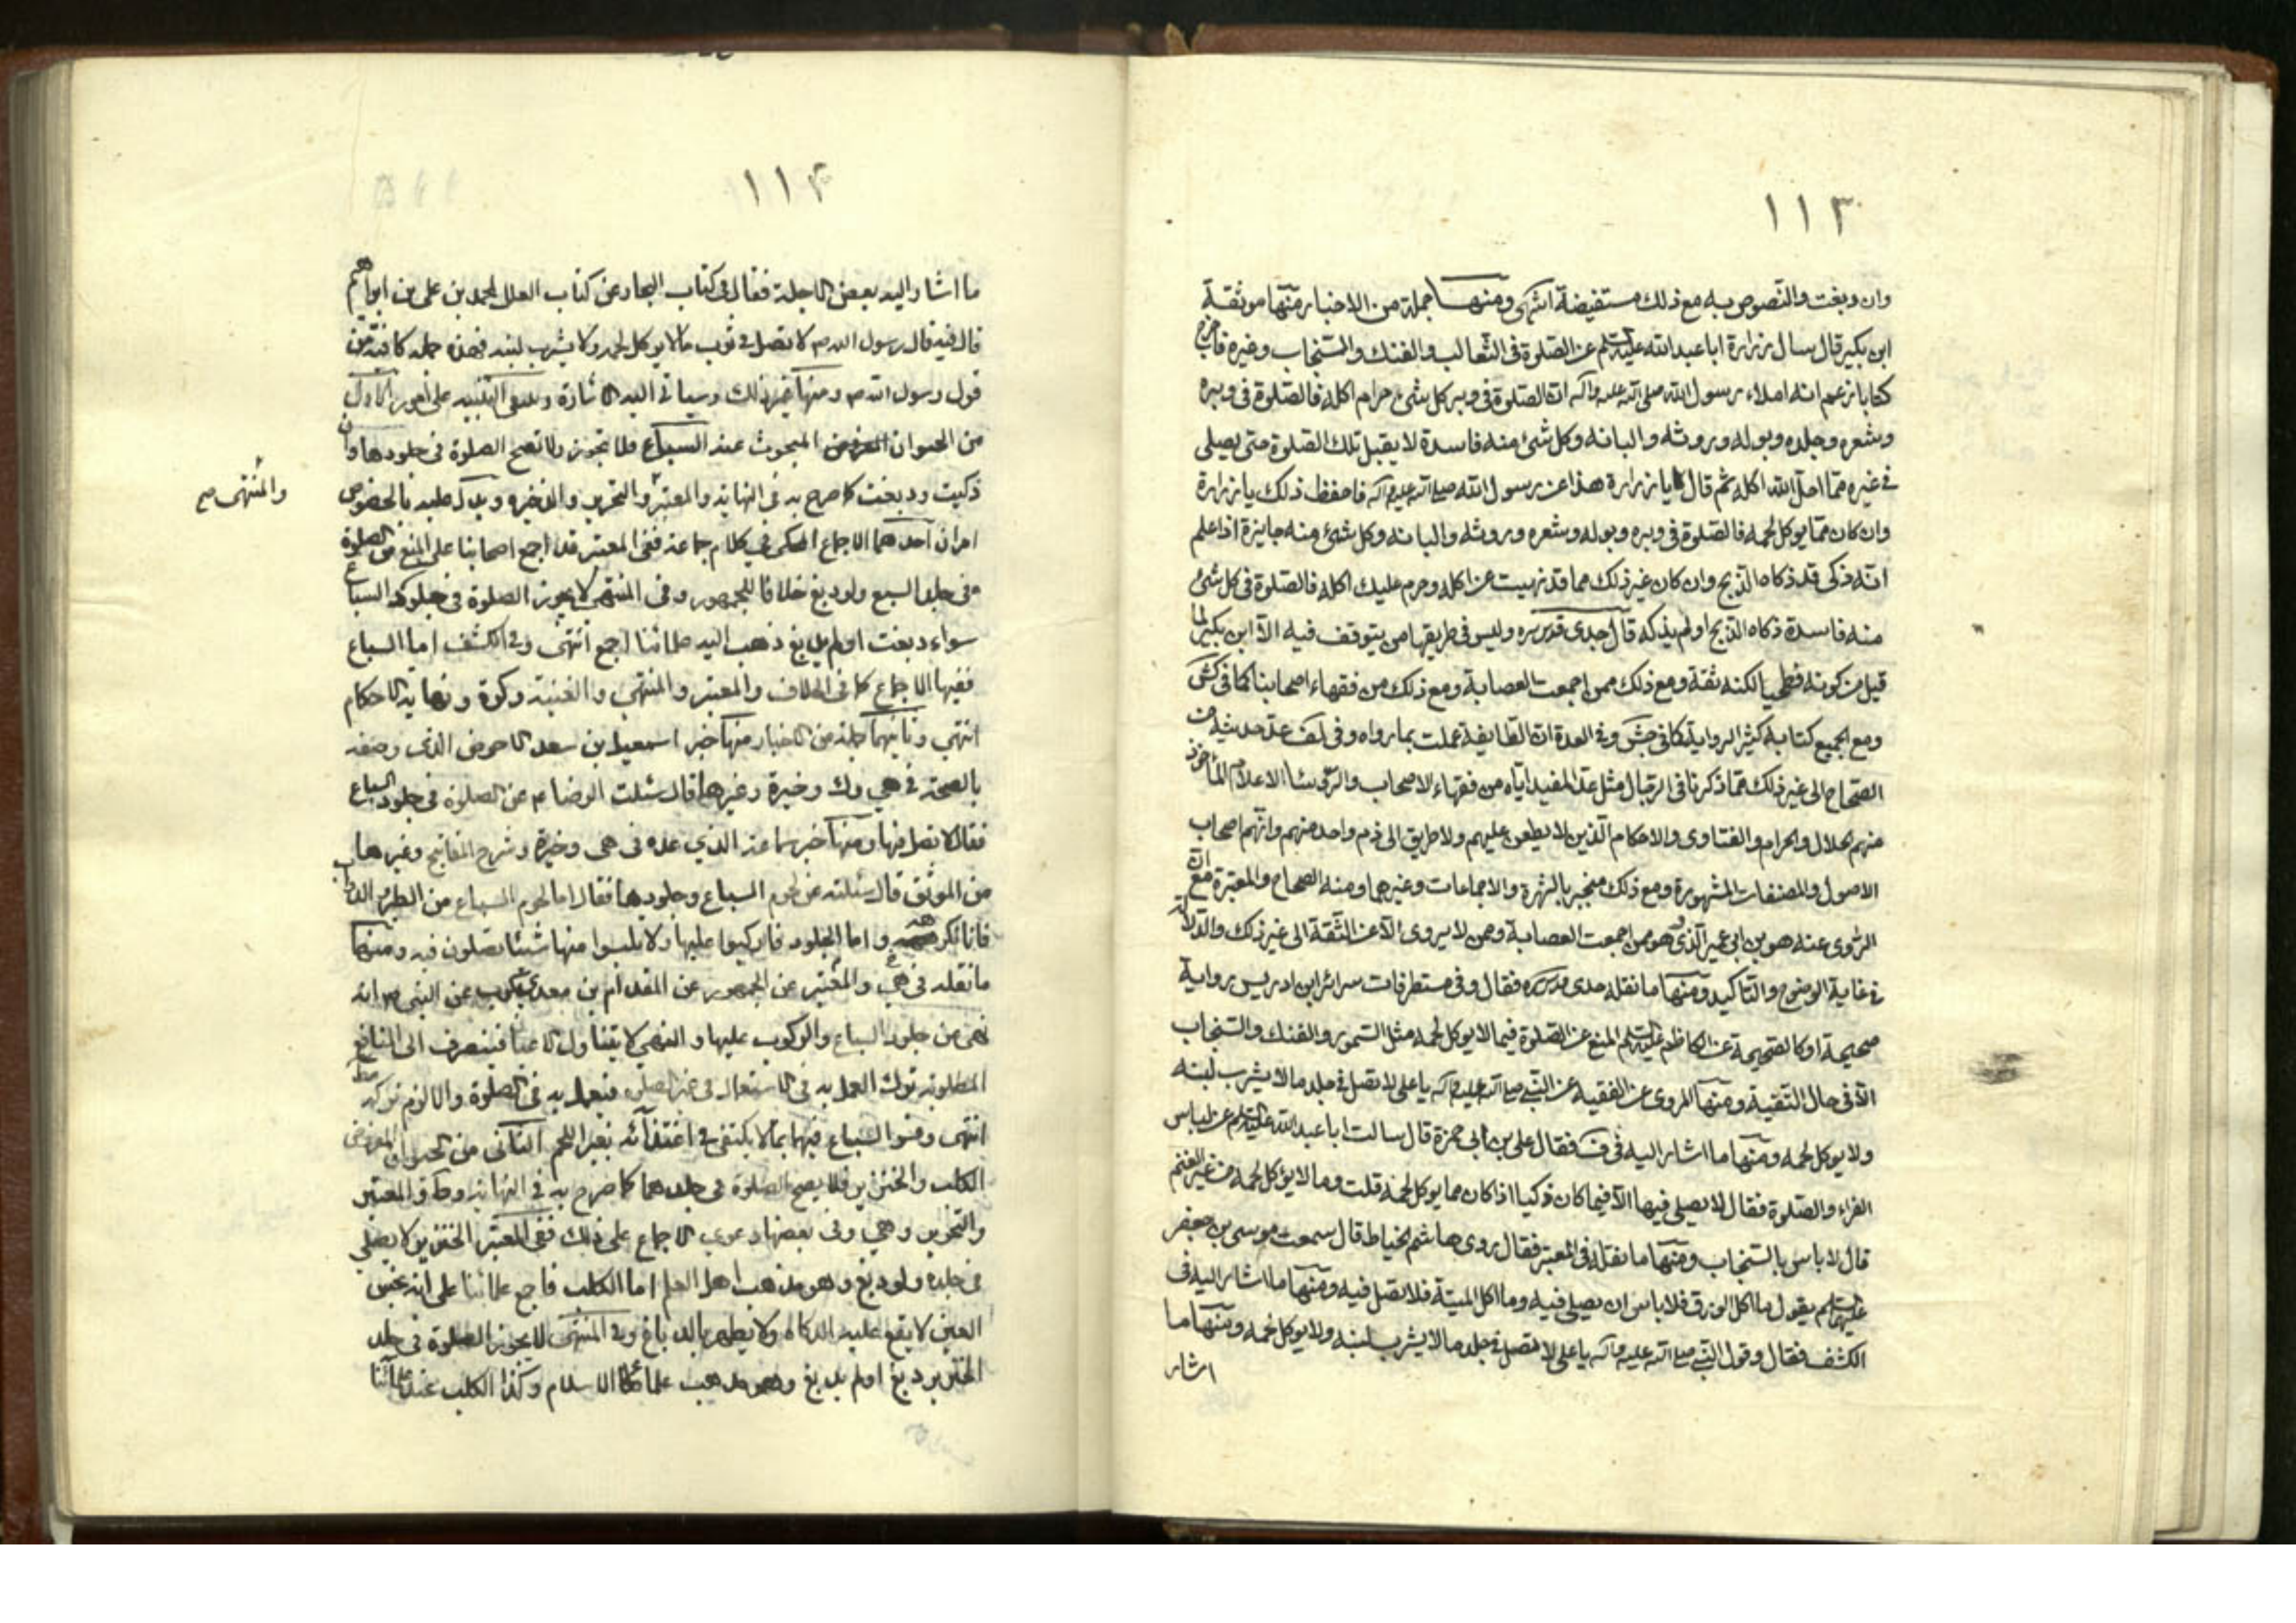 ١١٣
وان دبغت والنصوص به مع ذلك مستفيضة انتهى ومنها جملة من الاخبار منها موثقة
ابن بكير قال سال زرارة ابا عبدالله عليه السلم عن الصلوة فى الثعالب والفنك والسنجاب وغيره فاخرج
كتابا زعم انه املاء رسول الله صلى الله عليه وآله ان الصلوة فى وبر كل شئ حرام اكله فالصلوة فى وبره
وشعره وجلده وبوله وروثه والبانه وكل شئ منه فاسدة لا يقبل تلك الصلوة حتى يصلى
فى غيره مما احل الله اكله ثم قال يا زرارة هذا عن رسول الله صلى الله عليه وآله فاحفظ ذلك يا زرارة
وان كان مما يوكل لحمه فالصلوة فى وبره وبوله وشعره وروثه والبانه وكل شئ منه جايزة اذا علم
انه ذكى قد ذكاه الذبح وان كان غير ذلك مما قد نهيت عن اكله وحرم عليك اكله فالصلوة فى كل شئ
منه فاسدة ذكاه الذبح او لم يذكه قال جدى قدس سره وليس فى طريقها من يتوقف فيه الا ابن بكير لما
قيل من كونه فطحيا لكنه ثقة ومع ذلك ممن اجمعت العصابة ومع ذلك من فقهاء اصحابنا كما فى كش
ومع الجميع كتابه كثير الرواية كما فى جش وفى العدة ان الطايفة عملت بما رواه وفى لف عد حديثه من
الصحاح الى غير ذلك مما ذكرنا فى الرجال مثل عد المفيد اياه من فقهاء الاصحاب والرؤسا الاعلام المأخوذ
منهم الحلال والحرام والفتاوى والاحكام الذين لا يطعن عليهم ولا طريق الى ذم واحد منهم وانهم اصحاب
الاصول والمصنفات المشهورة ومع ذلك منجبر بالشهرة والاجماعات وغيرهما ومنه الصحاح والمعتبرة مع ان
الروى عنه هو بن ابى عمير الذى هو ممن اجمعت العصابة وممن لا يروى الا عن الثقة الى غير ذلك والدلالة
فى غاية الوضوح والتاكيد ومنها ما نقله جدى قدس سره فقال وفى مستطرفات سرائر ابن ادريس برواية
صحيحة او كالصحيحة عن الكاظم عليه السلم المنع عن الصلوة فيما لا يوكل لحمه مثل السمور والفنك والسنجاب
الا فى حال التقية ومنها المروى عن الفقيه عن النبى صلى الله عليه وآله يا على لا تصل فى جلد ما لا يشرب لبنه
ولا يوكل لحمه ومنها ما اشار اليه فى ف فقال على بن ابى حمزة قال سالت ابا عبد الله عليه السلم عن لباس
الفراء والصلوة فقال لا يصلى فيها الا فيما كان ذكيا اذا كان مما يوكل لحمه قلت وما لا يؤكل لحمه من غير الغنم
قال لا باس بالسنجاب ومنها ما نقله فى المعتبر فقال روى هاشم الخياط قال سمعت موسى بن جعفر
عليهما السلم يقول ما اكل الورق فلا باس ان يصلى فيه وما اكل الميتة فلا تصل فيه ومنها ما اشار اليه فى
الكشف فقال وقول النبى صلى الله عليه وآله يا على لا تصل فى جلد ما لا يشرب لبنه ولا يوكل لحمه ومنها ما
اشار
١١۴
ما اشار اليه بعض الاجلة فقال فى كتاب البحار عن كتاب العلل لمحمد بن على بن ابراهيم
قال فيه قال رسول الله ص لا تصل فى ثوب ما لا يوكل لحمه ولا يشرب لبنه فهذه جملة كافية من
قول رسول الله ص ومنها غير ذلك وسياتى اليه الاشارة وينبغى التنبيه على امور الاول
من الحيوان المبحوث عنه السباع فلا تجوز ولا تصح الصلوة فى جلودها وان
ذكيت ودبغت كما صرح به فى النهاية والمعتبر والتحرير والذخيره ويدل عليه بالخصوص
والمنتهى صح
امران احدهما الاجماع المحكى فى كلام جماعة ففى المعتبر قد اجمع اصحابنا على المنع من الصلوة
فى جلد السبع ولو دبغ خلافا للجمهور وفى المنتهى لا يجوز الصلوة فى جلود السباع
سواء دبغت او لم يدبغ ذهب اليه علمائنا اجمع انتهى وفى الكشف اما السباع
ففيها الاجماع كما فى الخلاف والمعتبر والمنتهى والغنية وكرة ونهاية الاحكام
انتهى وثانيهما جملة من الاخبار منها خبر اسمعيل بن سعد الاحوص الذى وصفه
بالصحة فى هى وك وخيرة وغيرها قال سئلت الرضا عم عن الصلوة فى جلود السباع
فقال لا تصل فيها ومنها خبر سماعة الذي عده فى هى وخيرة وشرح المفاتيح وغيرها
من الموثق قال سئلته عن لحوم السباع وجلودها فقال اما لحوم السباع من الطير والدواب
فانا نكرهه واما الجلود فاركبوا عليها ولا تلبسوا منها شيئا تصلون فيه ومنها
ما نقله فى هى والمعتبر عن الجمهور عن المقدام بن معدى كرب عن النبى ص انه
نهى عن جلود السباع والركوب عليها والنهى لا يتناول الاعيان فينصرف الى المنافع
المطلوبة ترك العمل به فى الاستعمال فى غير الصلوة فنعمل به فى الصلوة والا لزم تركه مط
انتهى وفسر السباع فيهما بما لا يكتفى فى اغتذائه بغير اللحم الثانى من الحيوان المفروض
الكلب والخنزير فلا يصح الصلوة فى جلدهما كما صرح به فى النهاية وط والمعتبر
والتحرير وهى وفى بعضها دعوى الاجماع على ذلك ففى المعتبر الخنزير لا يصلى
فى جلده ولو دبغ وهو مذهب اهل العلم اما الكلب فاجمع علمائنا على انه نجس
العين لا يقع عليه الذكاة ولا يطهر بالدباغ وفى المنتهى لا يجوز الصلوة فى جلد
الخنزير دبغ او لم يدبغ وهو مذهب علماء الاسلام وكذا الكلب عند علمائنا